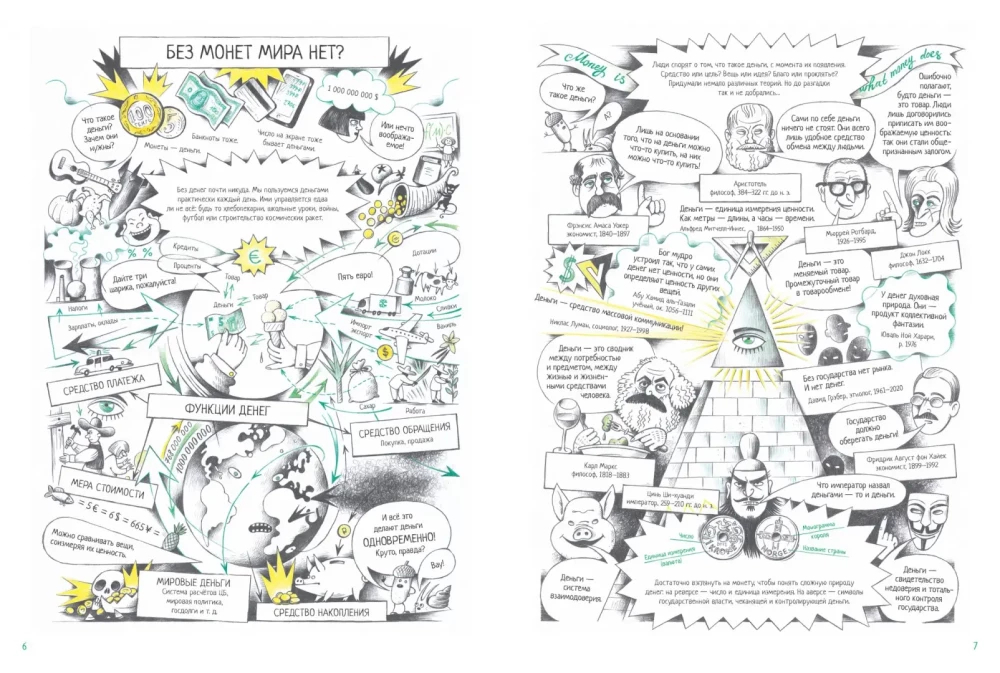 БЕЗ МОНЕТ МИРА НЕТ?
Что такое
деньги?
Зачем они
нужны?
100
5
Монеты — деньги.
Банкноты тоже.
Число на экране тоже
бывает деньгами.
1 000 000 000 $
Или нечто
вообража-
емое!
Без денег почти никуда. Мы пользуемся деньгами
практически каждый день. Ими управляется едва
ли не всё: будь то хлебопекарни, школьные уроки, войны,
футбол или строительство космических ракет.
% %
Кредиты
Проценты
€
Дайте три
шарика, пожалуйста!
Товар
Деньги
Товар
Пять евро!
Дотации
Молоко
Сливки
Ваниль
Импорт
экспорт
$
Налоги
Зарплаты, оклады
Сахар
Работа
СРЕДСТВО ПЛАТЕЖА
ФУНКЦИИ ДЕНЕГ
СРЕДСТВО ОБРАЩЕНИЯ
Покупка, продажа
1000 000 000
МЕРА СТОИМОСТИ
= 5 € = 6 $ = 665 ¥ =
Можно сравнивать вещи,
соизмеряя их ценность.
И всё это
делают деньги
ОДНОВРЕМЕННО!
Круто, правда?
Вау!
МИРОВЫЕ ДЕНЬГИ
Система расчётов ЦБ,
мировая политика,
госдолги и т. д.
СРЕДСТВО НАКОПЛЕНИЯ
6
Money is
what money does
Люди спорят о том, что такое деньги, с момента их появления.
Средство или цель? Вещь или идея? Благо или проклятье?
Придумали немало различных теорий. Но до разгадки
так и не добрались...
Что же
такое деньги?
Лишь на основании
того, что на деньги можно
что-то купить, на них
можно что-то купить!
Сами по себе деньги
ничего не стоят. Они всего
лишь удобное средство
обмена между людьми.
Ошибочно
полагают,
будто деньги —
это товар. Люди
лишь договорились
приписать им воо-
бражаемую ценность:
так они стали обще-
признанным залогом.
Аристотель
философ, 384–322 гг. до н. э.
Фрэнсис Амаса Уокер
экономист, 1840–1897
Деньги — единица измерения ценности.
Как метры — длины, а часы — времени.
Альфред Митчелл-Иннес, 1864–1950
Мюррей Ротбард,
1926–1995
Джон Локк
философ, 1632–1704
$
Бог мудро
устроил так, что у самих
денег нет ценности, но они
определяют ценность других
вещей.
Абу Хамид аль-Газали
учёный, ок. 1056–1111
Деньги — это
меняемый товар.
Промежуточный товар
в товарообмене!
Деньги — средство массовой коммуникации!
Никлас Луман, социолог, 1927–1998
У денег духовная
природа. Они —
продукт коллективной
фантазии.
Юваль Ной Харари,
р. 1976
Деньги — это сводник
между потребностью
и предметом, между
жизнью и жизнен-
ными средствами
человека.
Без государства нет рынка.
И нет денег.
Давид Грэбер, этнолог, 1961–2020
Государство
должно
оберегать деньги!
Карл Маркс
философ, 1818–1883
Фридрих Август фон Хайек
экономист, 1899–1992
Цинь Ши-хуанди
император, 259–210 гг. до н. э.
Что император назвал
деньгами — то и деньги.
Число
Единица измерения
(валюта)
Монограмма
короля
Название страны
NORGE
Деньги —
система
взаимодоверия.
Достаточно взглянуть на монету, чтобы понять сложную природу
денег: на реверсе — число и единица измерения. На аверсе — символы
государственной власти, чеканящей и контролирующей деньги.
Деньги —
свидетельство
недоверия и тоталь-
ного контроля
государства.
7